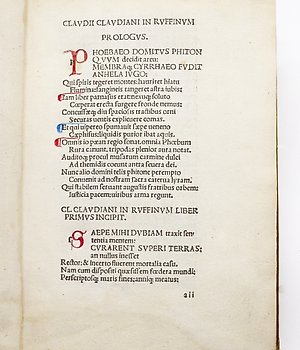 CLAVDII CLAVDIANI IN RVFFINVM
PROLOGVS.
PHOEBAEO DOMITVS PHITON
QVVM decidit arcu:
MEMBRAQ; CYRRHAEO FVDIT
ANHELA IVGO:
Qui spiris tegeret montes: hauriret hiatu
Flumina: sanguineis tangeret astra iubis:
Iam liber parnasus erat: nexuq; soluto
Corperat erecta surgere fronde nemus:
Concussæq; diu spatiosis tractibus orni
Securas uentis explicuere comas.
Et qui uipereo spumauit sæpe ueneno
Cæphisus: liquidis purior ibat aquis.
Omnis io pæan regio sonat. omnia Phœbum
Rura canunt. tripodas plenior aura rotat.
Auditoq; procul musarum carmine dulci
Ad themidis coeunt antra seuera dei.
Nunc alio domini telis phitone perempto
Conuenit ad nostram sacra caterua lyram.
Qui stabilem seruans augustis fratribus orbem:
Iustitia pacem: uiribus arma regunt.
CL. CLAVDIANI IN RVFFINVM LIBER
PRIMVS INCIPIT.
SAEPE MIHI DVBIAM traxit sen
tentia mentem:
CVRARENT SVPERI TERRAS:
an nullus inesset
Rector: & incerto fluerent mortalia casu.
Nam cum dispositi quæsissem fœdera mundi:
Perscriptosq; maris fines: annisq; meatus:
aii